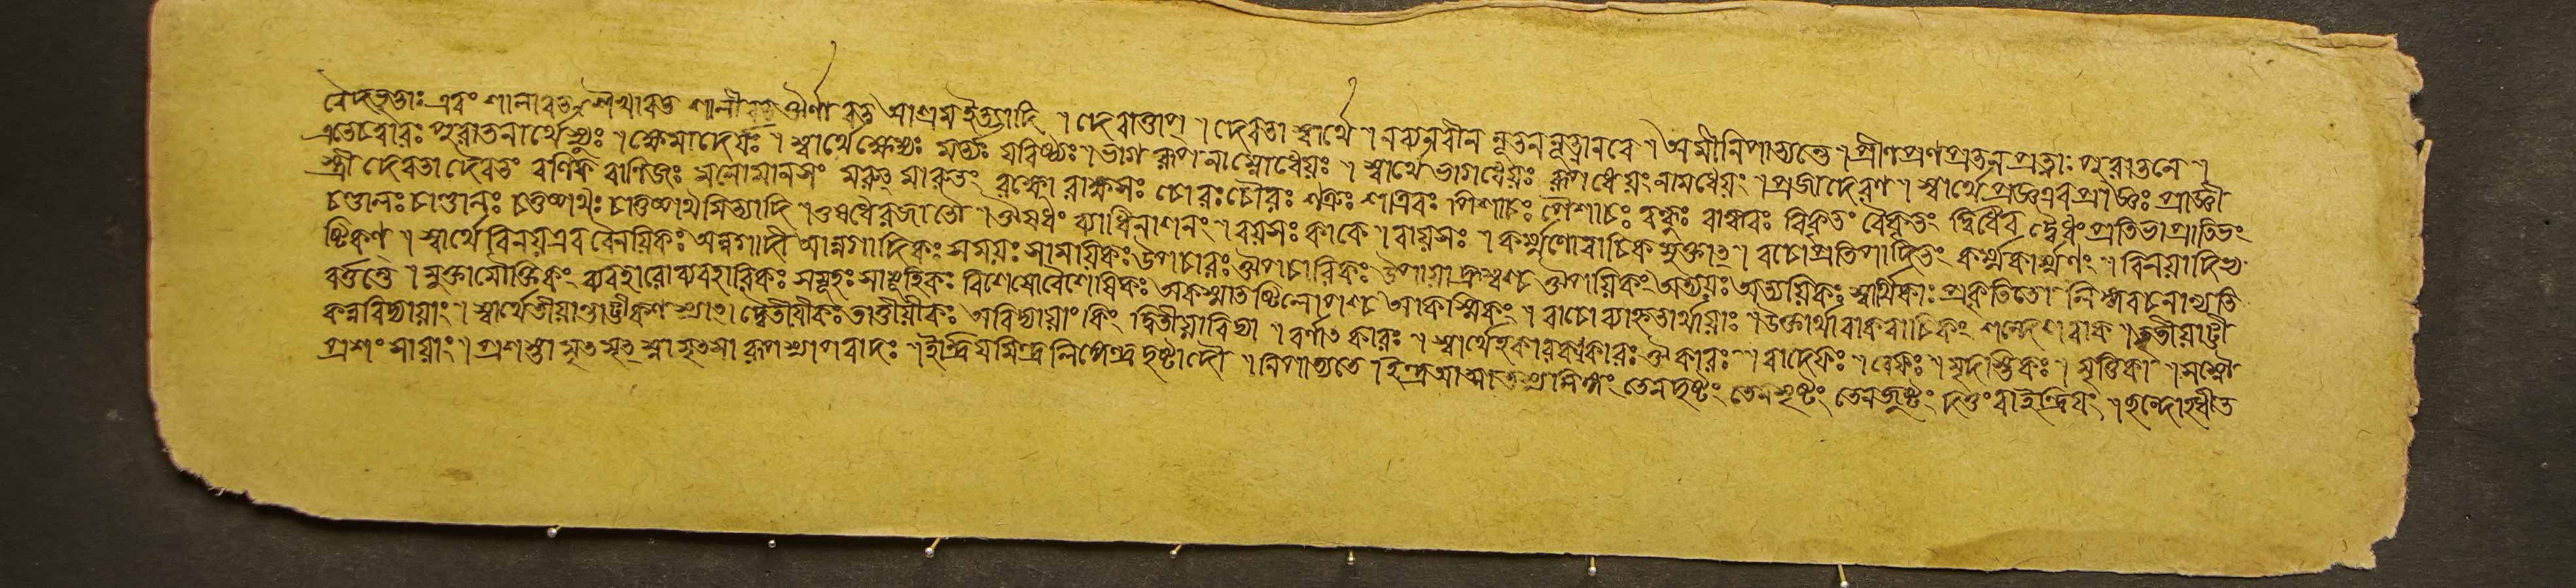 বেদভৃতাঃ এবং শালাবত শৈখাবত শালীবত ঔর্ণাবত আশ্রম ইত্যাদি । দেবাত্তাপ্ । দেবতা স্বার্থে । নব্যনবীন নূতন নূত্নানবে । অমীনিপাত্যন্তে । প্রীণপ্রণপ্রতনপ্রত্নাঃ পুরাতনে ।
এতেচত্বারঃ পুরাতনার্থেস্যুঃ । ক্ষেমাদের্যঃ । স্বার্থে ক্ষেম্যঃ মর্ত্ত্যঃ যবিষ্ঠ্যঃ । ভাগ রূপনাম্নোধেয়ঃ । স্বার্থে ভাগধেয়ঃ রূপধেয়ং নামধেয়ং । প্রজ্ঞাদেরণ্ । স্বার্থে প্রজ্ঞএব প্রাজ্ঞঃ প্রাজ্ঞী
স্ত্রী দেবতা দৈবতং বণিক্ বাণিজঃ মনোমানসং মরুৎ মারুতং রক্ষো রাক্ষসঃ চোরঃ চৌরঃ শত্রুঃ শাত্রবঃ পিশাচঃ পৈশাচঃ বন্ধুঃ বান্ধবঃ বিকৃতং বৈকৃতং দ্বিধৈব দ্বৈধং প্রতিভা প্রাতিভং
চণ্ডালঃ চাণ্ডালঃ চতুষ্পথঃ চাতুষ্পাথমিত্যাদি । ওষধেরজাতৌ । ঔষধং ব্যাধিনাশনং । বয়সঃ কাকে । বায়সঃ । কর্ম্মণোবাচিক মুক্তাত্ । বচোপ্রতিপাদিতং কর্ম্মকার্ম্মণং । বিনয়াদিভ্য
ষ্টিকণ্ । স্বার্থে বিনয়এব বৈনয়িকঃ অনুগাদী আনুগাদিকঃ সময়ঃ সাময়িকঃ উপচারঃ ঔপচারিকঃ উপায়া হ্রস্বশ্চ ঔপয়িকঃ অত্যয়ঃ আত্যয়িকঃ স্বার্থিকাঃ প্রকৃতিতো লিঙ্গবচনান্যতি
বর্ত্তন্তে । মুক্তামৌক্তিকং ব্যবহারোব্যবহারিকঃ সমূহঃ সামূহিকঃ বিশেষোবৈশেষিকঃ অকস্মাত ষ্টিলোপশ্চ আকস্মিকং । বাচো ব্যাহৃতার্থায়াঃ । উক্তার্থাবাক্বাচিকং শন্দেশবাক্ । তৃতীয়াট্টী
কন্নবিদ্যায়াং । স্বার্থেতীয়ান্তাট্টীকণ্ স্যাৎ । দ্বৈতীয়ীকঃ তার্তীয়ীকঃ অবিদ্যায়াং কিং দ্বিতীয়াবিদ্যা । বর্ণাত্ কারঃ । স্বার্থেহকারককারঃ ঔকারঃ । রাদেফঃ । রেফঃ । মৃদস্তিকঃ । মৃত্তিকা । সস্নৌ
প্রশংসায়াং । প্রশস্তা মৃত মৃত্ স্না মৃৎসা রূপস্যাপবাদঃ । ইন্দ্রিয়মিন্দ্র লিঙ্গেন্দ্র দৃষ্টাদৌ । নিপাত্যতে । ইন্দ্রআত্মাতস্যলিঙ্গং তেনদৃষ্টং তেনসৃষ্টং তেনজুষ্টং দত্তংবাইন্দ্রিয়ং । ছন্দোহধীত